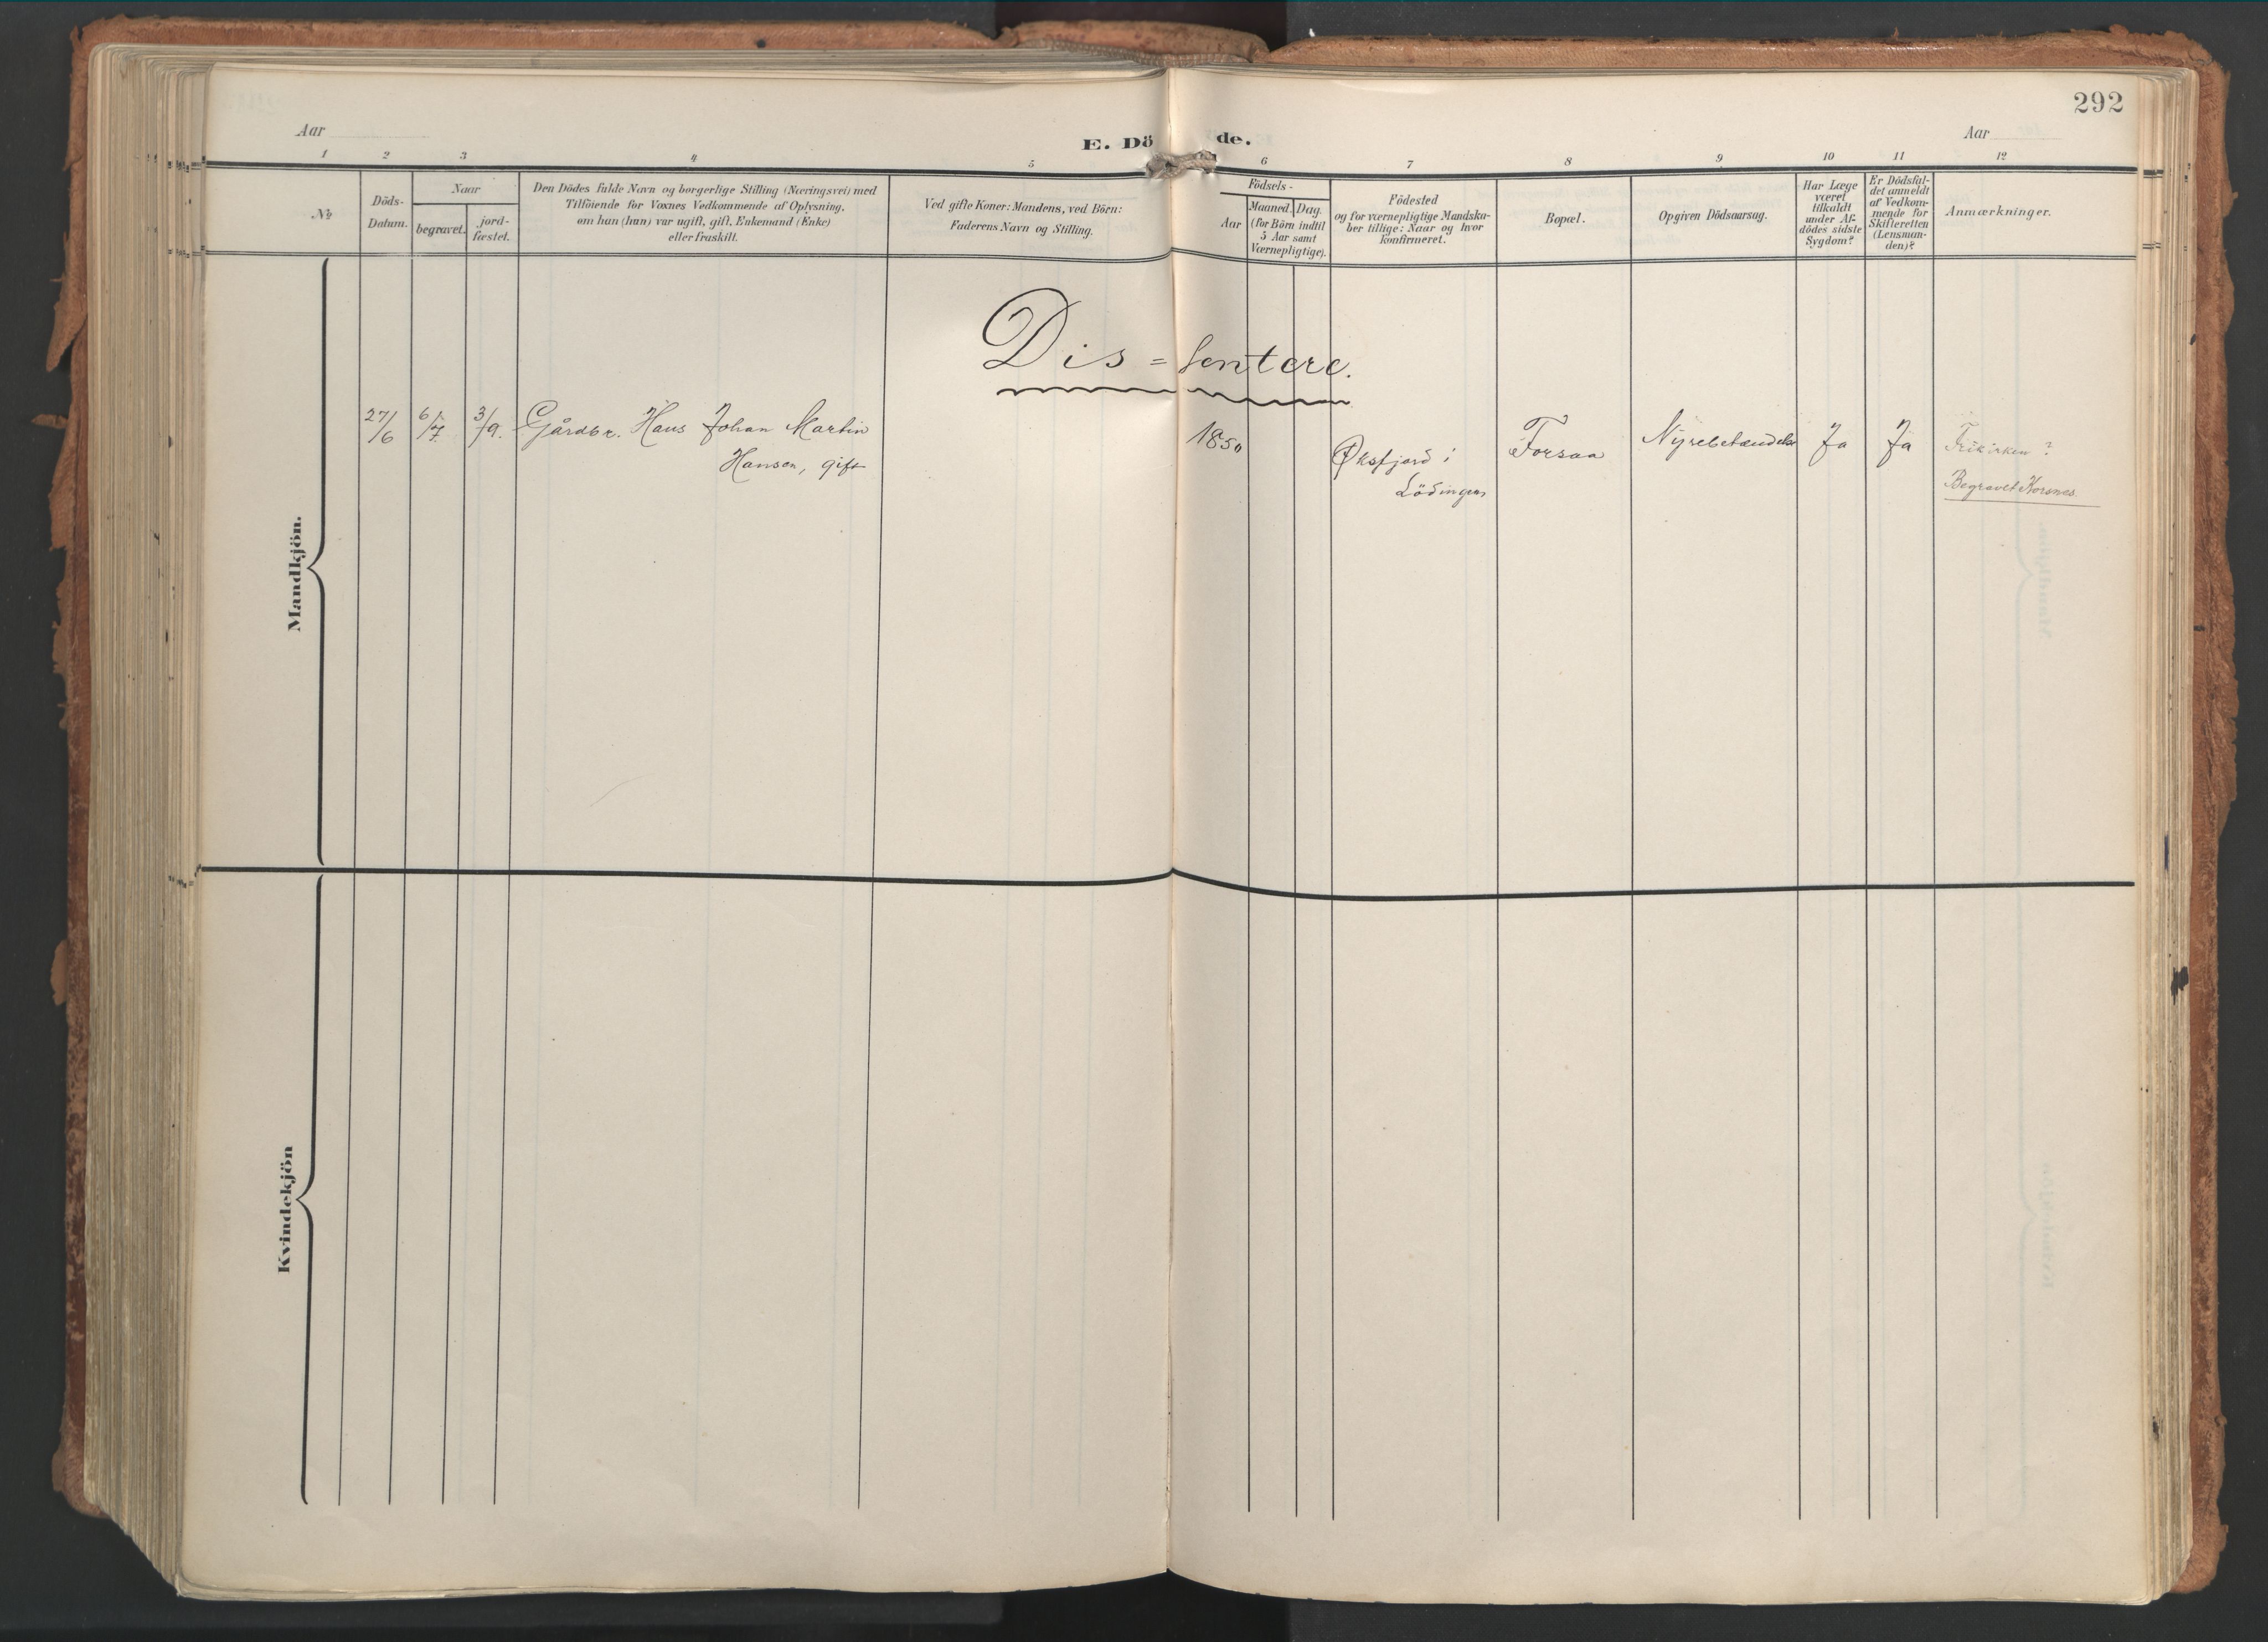 292
Aar
E. Döde.
Aar
1 2 3 4 5 6 7 8 9 10 11 12
№
Döds-
Datum.
Naar
begravet.
jord-
fæstet.
Den Dödes fulde Navn og borgerlige Stilling (Næringsvei) med
Tilföiende for Voxnes Vedkommende af Oplysning,
om han (hun) var ugift, gift, Enkemand (Enke)
eller fraskilt.
Ved gifte Koner: Mandens, ved Börn:
Faderens Navn og Stilling.
Födsels-
Aar
Maaned.
Dag.
(for Börn indtil
5 Aar samt
Værnepligtige).
Födested
og for værnepligtige Mandska-
ber tillige: Naar og hvor
konfirmeret.
Bopæl.
Opgiven Dödsaarsag.
Har Læge
været
tilkaldt
under Af-
dödes sidste
Sygdom?
Er Dödsfal-
det anmeldt
af Vedkom-
mende for
Skifteretten
(Lensman-
den)?
Anmærkninger.
Dis=sentere.
Mandkjön.
27/6 6/7 3/9. Gårdbr. Hans Johan Martin
Hansen, gift
1850
Øksfjord i
Lödingen
Forsaa
Nyrebetændelse
Ja
Ja
Frikirken?
Begravet Korsnes
Kvindekjön